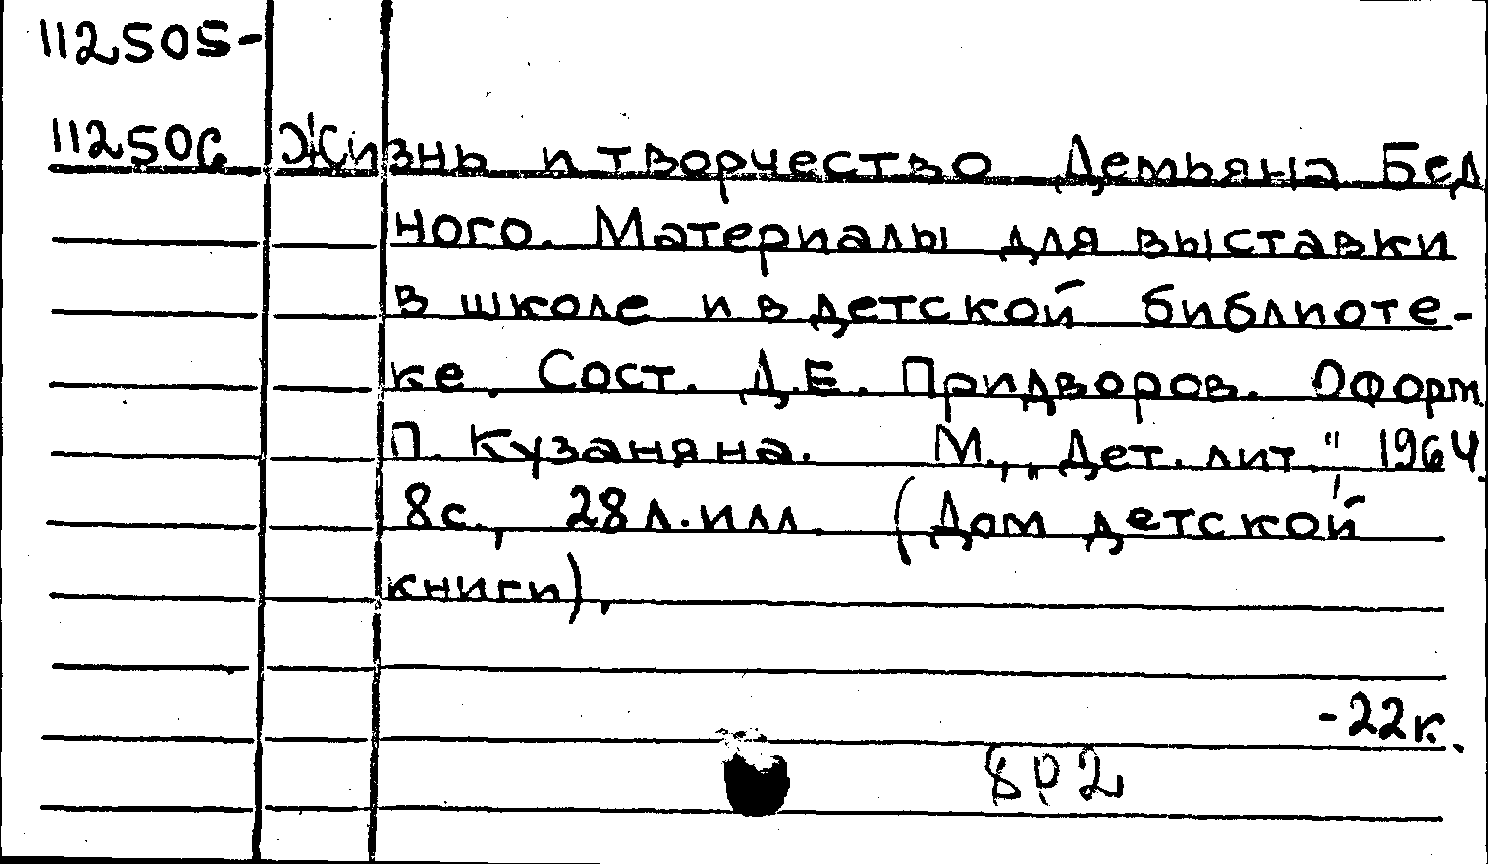 112505-
112506 Жизнь и творчество Демьяна Бед
ного. Материалы для выставки
в школе и в детской библиоте-
ке. Сост. Д.Е. Придворов. Оформ.
П. Кузаняна. М., „Дет. лит." 1964.
8с., 28л.илл. (Дом детской
книги),
-22к.
8Р2